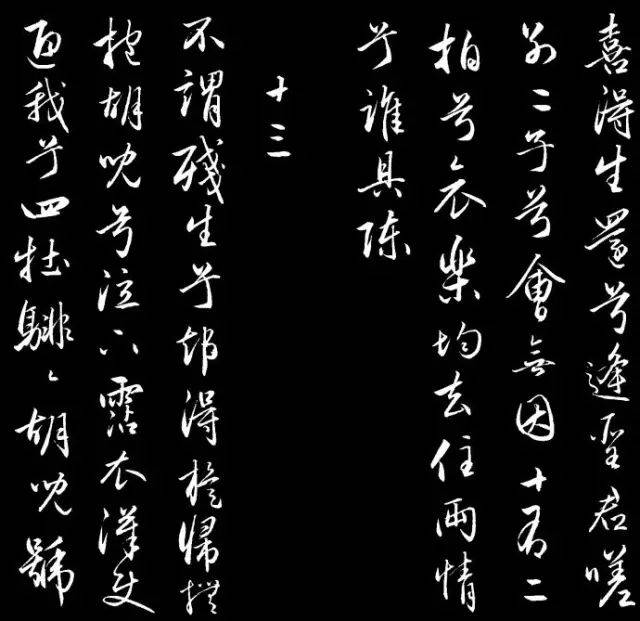 喜得生還兮逢聖君嗟
別二子兮會無因十有二
拍兮哀樂均去住兩情
兮誰具陳
十三
不謂殘生兮却得旋歸撫
抱胡兒兮泣下霑衣漢使
迎我兮四牡騑〻胡兒號